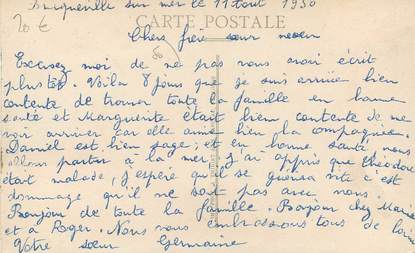 Bricqueville sur mer le 11 août 1930
20 €
CARTE POSTALE
Chers frère sœur neveu
Excusez moi de ne pas vous avoir écrit
plus tôt. Voila 8 jours que je suis arrivée bien
contente de trouver toute la famille en bonne
santé et Marguerite était bien contente de me
voir arriver car elle aime bien la compagnie.
Daniel est bien sage, et en bonne santé nous
allons partir à la mer. J'ai appris que Théodore
était malade, j'espère qu'il se guérira vite c'est
dommage qu'il ne soit pas avec nous.
Bonjour de toute la famille. Bonjour chez Marie
et à Roger. Nous vous embrassons tous de loin
Votre sœur Germaine